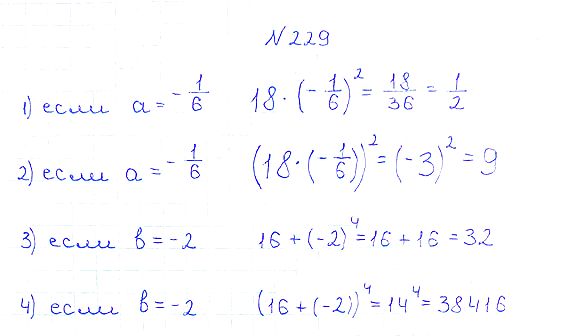 N 229
1) если a = -1/6 18 · (-1/6)² = 18/36 = 1/2
2) если a = -1/6 (18 · (-1/6))² = (-3)² = 9
3) если b = -2 16 + (-2)⁴ = 16 + 16 = 3.2
4) если b = -2 (16 + (-2))⁴ = 14⁴ = 38416